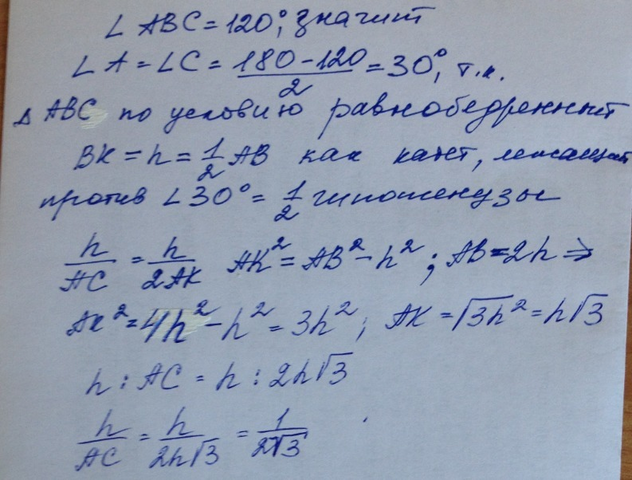 ∠ ABC = 120°, значит
∠ A = ∠ C = (180 - 120)/2 = 30°, т.к.
Δ ABC по условию равнобедренный
BK = h = 1/2 AB как катет, лежащий
против ∠ 30° = 1/2 гипотенузы
h/AC = h/2AK AK² = AB² - h² ; AB = 2h ⇒
AK² = 4h² - h² = 3h² ; AK = √3h² = h√3
h : AC = h : 2h√3
h/AC = h/2h√3 = 1/2√3